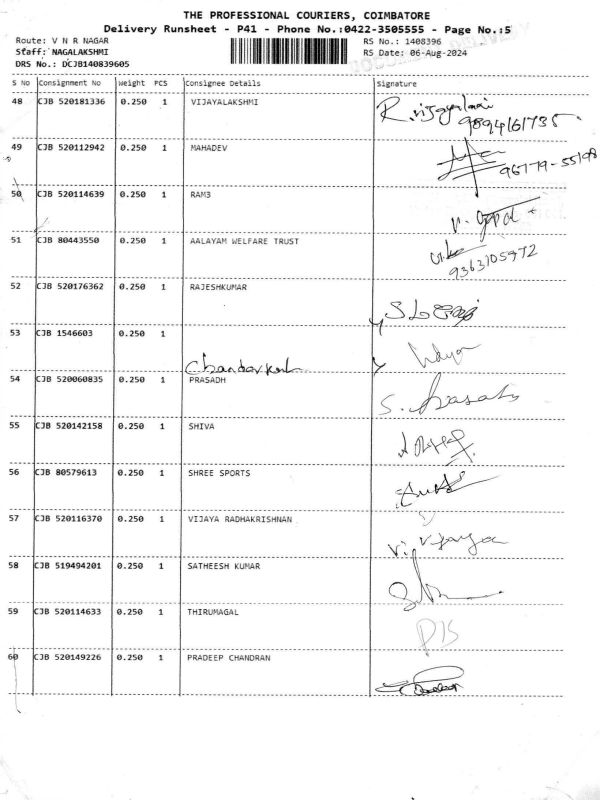 THE PROFESSIONAL COURIERS, COIMBATORE
Delivery Runsheet - P41 - Phone No.:0422-3505555 - Page No.:5
Route: V N R NAGAR RS No.: 1408396
Staff: NAGALAKSHMI RS Date: 06-Aug-2024
DRS No.: DCJB140839605
S No Consignment No Weight PCS Consignee Details Signature
48 CJB 520181336 0.250 1 VIJAYALAKSHMI R. Vijayalaxmi
9894161735
49 CJB 520112942 0.250 1 MAHADEV
96779-55198
50 CJB 520114639 0.250 1 RAM3
51 CJB 80443550 0.250 1 AALAYAM WELFARE TRUST
9363105972
52 CJB 520176362 0.250 1 RAJESHKUMAR
53 CJB 1546603 0.250 1
54 CJB 520060835 0.250 1 PRASADH
55 CJB 520142158 0.250 1 SHIVA
56 CJB 80579613 0.250 1 SHREE SPORTS
57 CJB 520116370 0.250 1 VIJAYA RADHAKRISHNAN
58 CJB 519494201 0.250 1 SATHEESH KUMAR
59 CJB 520114633 0.250 1 THIRUMAGAL
60 CJB 520149226 0.250 1 PRADEEP CHANDRAN